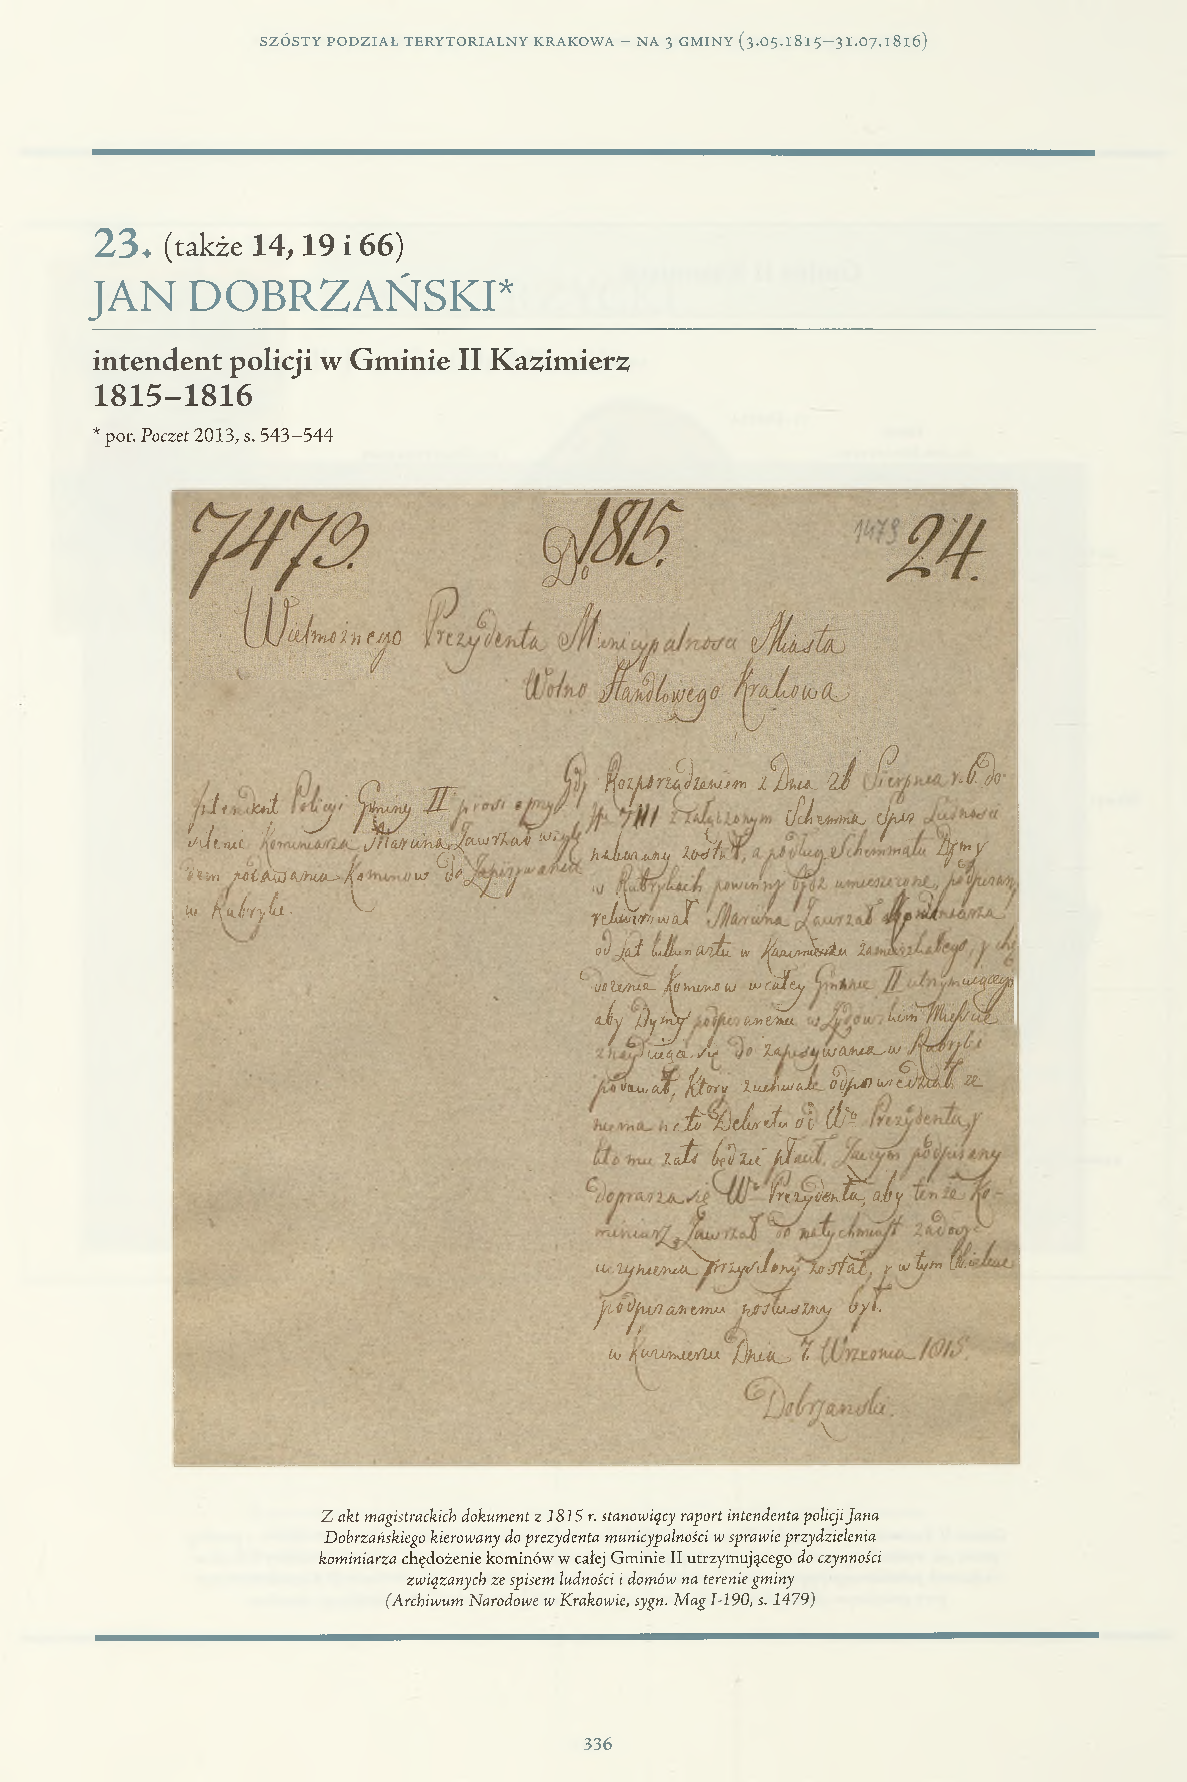 SZÓSTY PODZIAŁ TERYTORIALNY KRAKOWA – NA 3 GMINY (3.05.1815–31.07.1816)
23. (także 14, 19 i 66)
JAN DOBRZAŃSKI*
intendent policji w Gminie II Kazimierz
1815–1816
* por. Poczet 2013, s. 543–544
7473. Do 1815. 1479 24.
Wielmożnego Prezydenta Municypalnosci Miasta
Wolno Handlowego Krakowa
Intendent Policyi Gminy II prosi o przy
dzielenie Kominiarza Marcina Zawrzał wzglę
dem podawania Kominow do Zapisywania
w Rubryki.
Gdy Rozporządzeniem z Dnia 26 Sierpnia r. b. do
Nr 7111 z załączonym Schemma Spis Ludnosci
nakazany został, a podług Schemmatu Dymy
w Rubrykach powinny bydź umieszczone, podpisany
rekwirował Marcina Zawrzał Kominiarza
od lat kilkunastu w Kazimierzu zamieszkałego, y chę
dożenie Kominow w całey Gminie II utrzymuiącego
aby Dymy podpisanemu w Żydowskim Mieście
znayduiące się do zapisywania w Rubryki
podawał, ktory zuchwale odpowiedział, że
niema na to Dekretu od Wo Prezydenta, y
kto mu zato będzie płacił. Zaczym podpisany
doprasza się Wo Prezydenta, aby tenże Ko-
miniarz Zawrzał do natychmiast zadosyć
uczynienia przydzielony został, y w tym
podpisanemu posłuszny był.
w Kazimierzu Dnia 7. Wrzesnia 1815.
Dobrzanski.
Z akt magistrackich dokument z 1815 r. stanowiący raport intendenta policji Jana
Dobrzańskiego kierowany do prezydenta municypalności w sprawie przydzielenia
kominiarza chędożenie kominów w całej Gminie II utrzymującego do czynności
związanych ze spisem ludności i domów na terenie gminy
(Archiwum Narodowe w Krakowie, sygn. Mag I-190, s. 1479)
336